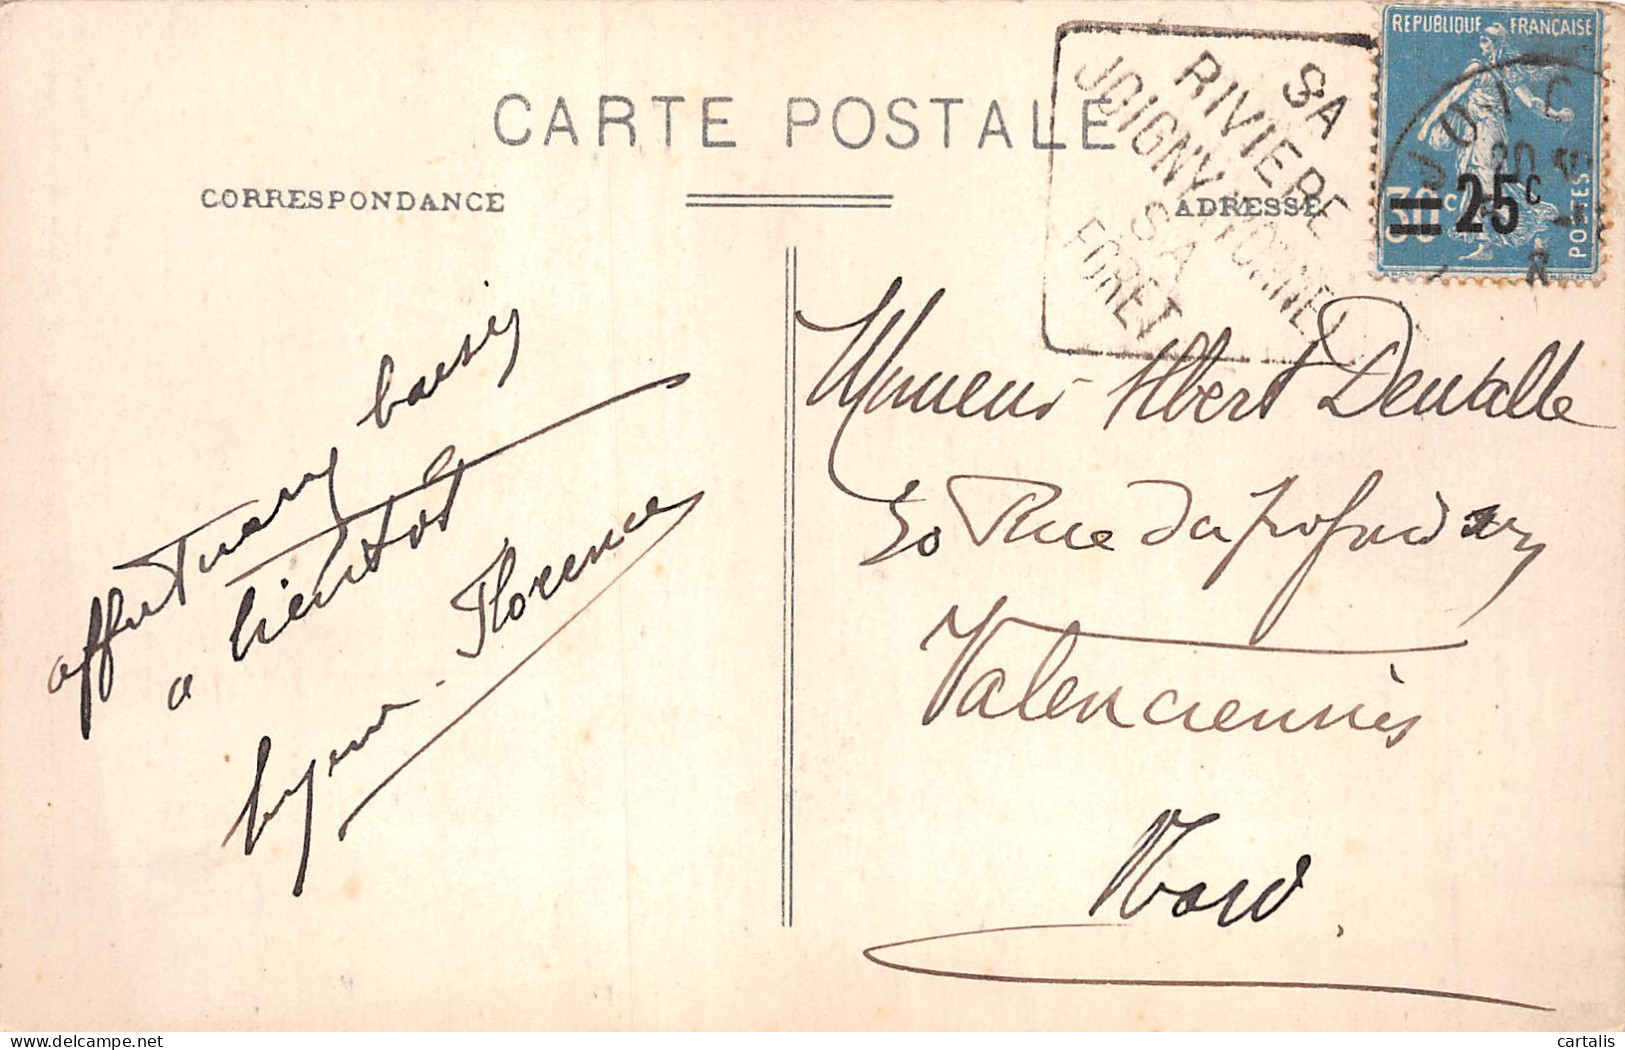 CARTE POSTALE
CORRESPONDANCE
ADRESSE
SA
RIVIERE
JOIGNY (YONNE)
SA
FORET
REPUBLIQUE FRANÇAISE
30c 25c
POSTES
20
baisers
a bientot
Florence
Monsieur Albert
30 Rue du
Valenciennes
Nord.
delcampe.net
cartalis